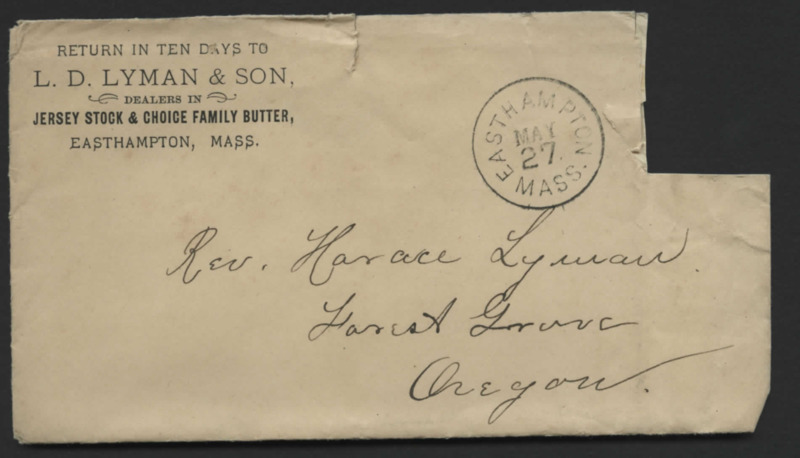 RETURN IN TEN DAYS TO
L. D. LYMAN & SON,
DEALERS IN
JERSEY STOCK & CHOICE FAMILY BUTTER,
EASTHAMPTON, MASS.
EASTHAMPTON
MAY
27.
MASS.
Rev. Horace Lyman
Forest Grove
Oregon.